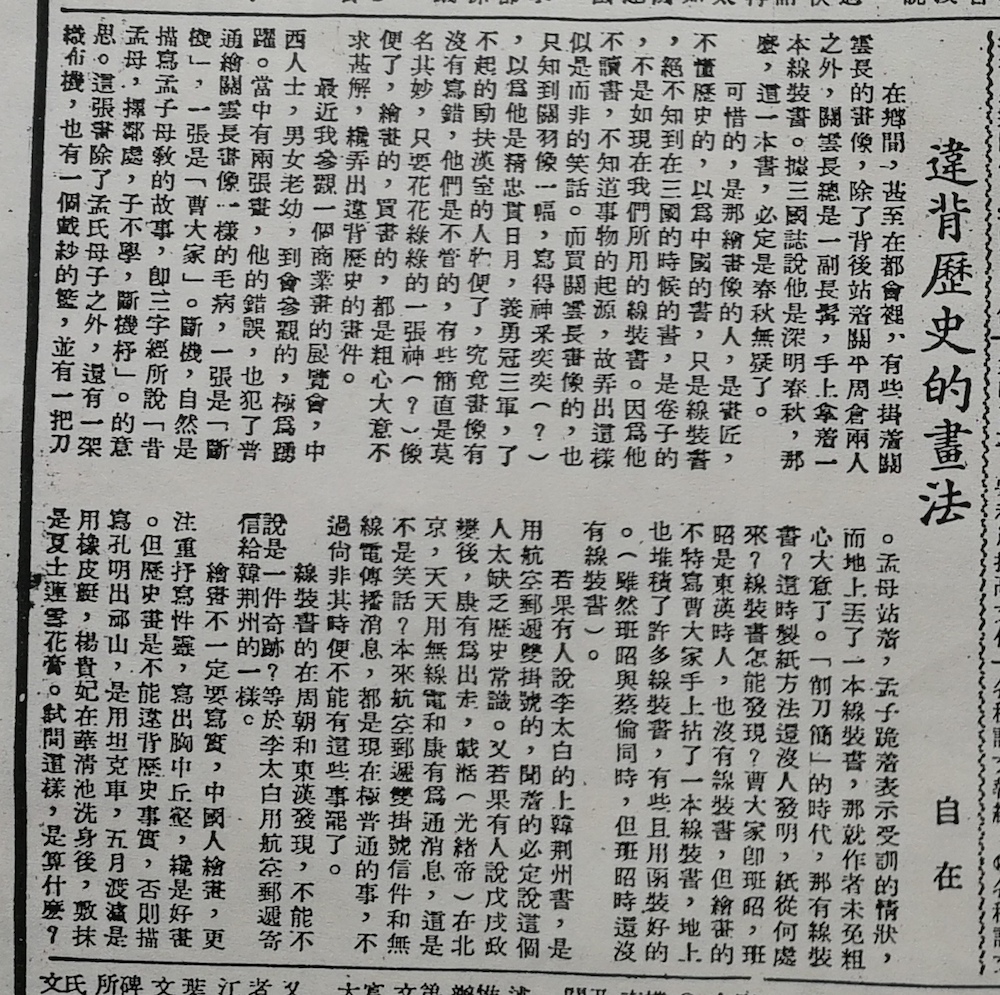 違背歷史的畫法
自在
在鄉間，甚至在都會裡，有些掛着關
雲長的畫像，除了背後站着關平周倉兩人
之外，關雲長總是一副長髯，手上拿着一
本線裝書。據三國誌說他是深明春秋，那
麼，這一本書，必定是春秋無疑了。
可惜的，是那繪畫像的人，是畫匠，
不懂歷史的，以爲中國的書，只是線裝書
，絕不知到在三國的時候的書，是卷子的
，不是如現在我們所用的線裝書。因爲他
不讀書，不知道事物的起源，故弄出這樣
似是而非的笑話。而買關雲長畫像的，也
只知到關羽像一幅，寫得神釆突突（？）
，以爲他是精忠貫日月，義勇冠三軍，了
不起的勖扶漢室的人物便了，究竟畫像有
沒有寫錯，他們是不管的，有些簡直是莫
名其妙，只要花花綠綠的一張神（？）像
便了，繪畫的，買畫的，都是粗心大意不
求甚解，纔弄出違背歷史的畫件。
最近我參觀一個商業畫的展覽會，中
西人士，男女老幼，到會參觀的，極爲踴
躍。當中有兩張畫，他的錯誤，也犯了普
通繪關雲長畫像一樣的毛病，一張是「斷
機」，一張是「曹大家」。斷機，自然是
描寫孟子母敎的故事，卽三字經所說「昔
孟母，擇鄰處，子不學，斷機杼」。的意
思。這張畫除了孟氏母子之外，還有一架
織布機，也有一個戴紗的籃，並有一把刀
。孟母站着，孟子跪着表示受訓的情狀，
而地上丟了一本線裝書，那就作者未免粗
心大意了。「削刀簡」的時代，那有線裝
書？這時製紙方法還沒人發明，紙從何處
來？線裝書怎能發現？曹大家卽班昭，班
昭是東漢時人，也沒有線裝書，但繪畫的
不特寫曹大家手上拈了一本線裝書，地上
也堆積了許多線裝書，有些且用函裝好的
。（雖然班昭與蔡倫同時，但班昭時還沒
有線裝書）。
若果有人說李太白的上韓荆州書，是
用航空郵遞雙掛號的，聞着的必定說這個
人太缺乏歷史常識。又若果有人說戊戌政
變後，康有爲出走，載湉（光緒帝）在北
京，天天用無線電和康有爲通消息，這是
不是笑話？本來航空郵遞雙掛號信件和無
線電傳播消息，都是現在極普通的事，不
過倘非其時便不能有這些事罷了。
線裝書的在周朝和東漢發現，不能不
說是一件奇跡？等於李太白用航空郵遞寄
信給韓荆州的一樣。
繪畫不一定要寫實，中國人繪畫，更
注重抒寫性靈，寫出胸中丘壑，纔是好畫
。但歷史畫是不能違背歷史事實，否則描
寫孔明出祁山，是用坦克車，五月渡瀘是
用橡皮艇，楊貴妃在華淸池洗身後，敷抹
是夏士蓮雪花膏。試問這樣，是算什麽？